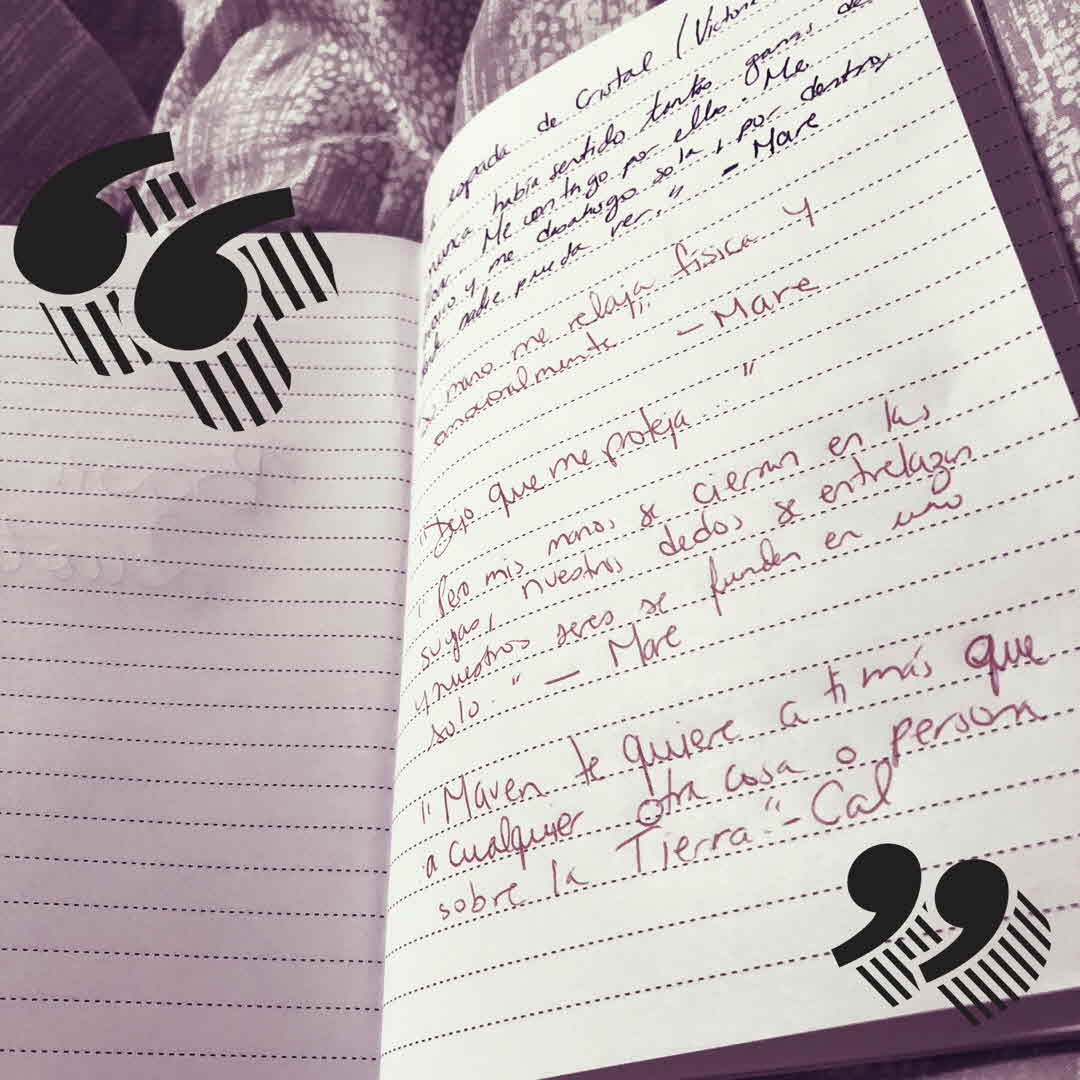 espada de Cristal (Victoria
nunca había sentido tantas ganas de
Me contengo por ello. Me
y me desahogo sola, por dentro,
donde nadie pueda ver." - Mare
mano me relaja física y
emocionalmente" - Mare
"Dejo que me proteja... "
"Pero mis manos se cierran en las
suyas, nuestros dedos se entrelazan
y nuestros seres se funden en uno
solo." - Mare
"Maven te quiere a ti más que
a cualquier otra cosa o persona
sobre la Tierra." - Cal